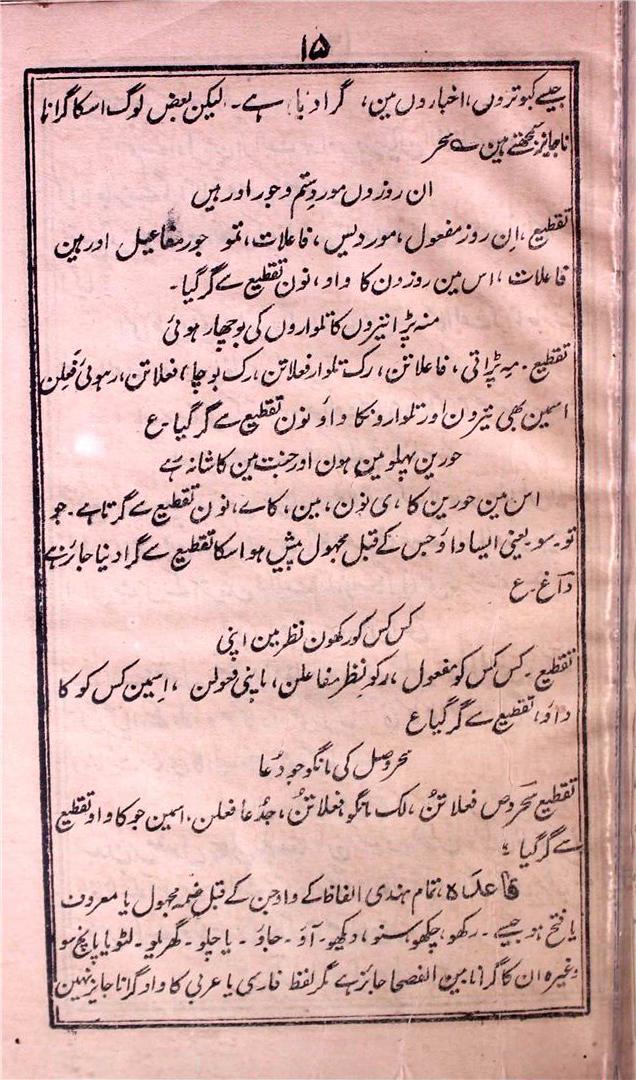 ۱۵
جیسے کبوتروں، اخباروں مین، گرا دیا ہے۔ لیکن بعض لوگ اسکا گرانا
ناجائز سمجھتے ہین ؎ سحر
ان روزوں مورد ستم و جور اور ہیں
تقطیع، اِن روز مفعول، مورد یس، فاعلات، تمو جور مفاعیل اور ہین
فاعلات، اس مین روزدن کا واو، نون تقطیع سے گر گیا۔
منہ پڑا نیزوں کا تلواروں کی بوچھار ہوئی
تقطیع۔ مہ پڑانی، فاعلاتن، رک تلوار فعلاتن، رک بوچا، فعلاتن، رہوئی فَعِلن
اسمین بھی نیزون اور تلوارونکا واو نون تقطیع سے گر گیا۔ ع
حورین پہلو مین ہون اور جنت مین کاشانہ ہے
اس مین حورین کا، ی نون، مین، کاے، نون تقطیع سے گرتا ہے۔ جو
تو۔ سو۔ یعنی ایسا واو جس کے قبل مجہول پیش ہو اسکا تقطیع سے گرا دنیا جائز ہے
داغ۔ ع
کس کس کو رکھون نظر مین اپنی
تقطیع۔ کس کس کو مفعول، رکو نظر مفاعلن، اپنی فعولن، اسمین کس کو کا
داو، تقطیع سے گر گیا ع
سحر وصل کی مانگو جو دُعا
تقطیع سَحَروص فعلاتنُ، لک مانگو فعلاتنُ، جدُعا فعلن، اسمین جو کا واو تقطیع
سے گر گیا
قاعدہ، تمام ہندی الفاظ کے واو جن کے قبل ضمہ مجہول یا معروف
یا فتح ہو جیسے۔ رکھو، چکھو، سنو، دیکھو۔ آؤ۔ جاؤ۔ یا چلو۔ گھریلو۔ لٹو یا پانچ سو
وغیرہ ان کا گرانا بین الفصحا جائز ہے مگر لفظ فارسی یا عربی کا واو گرانا جایز نہین